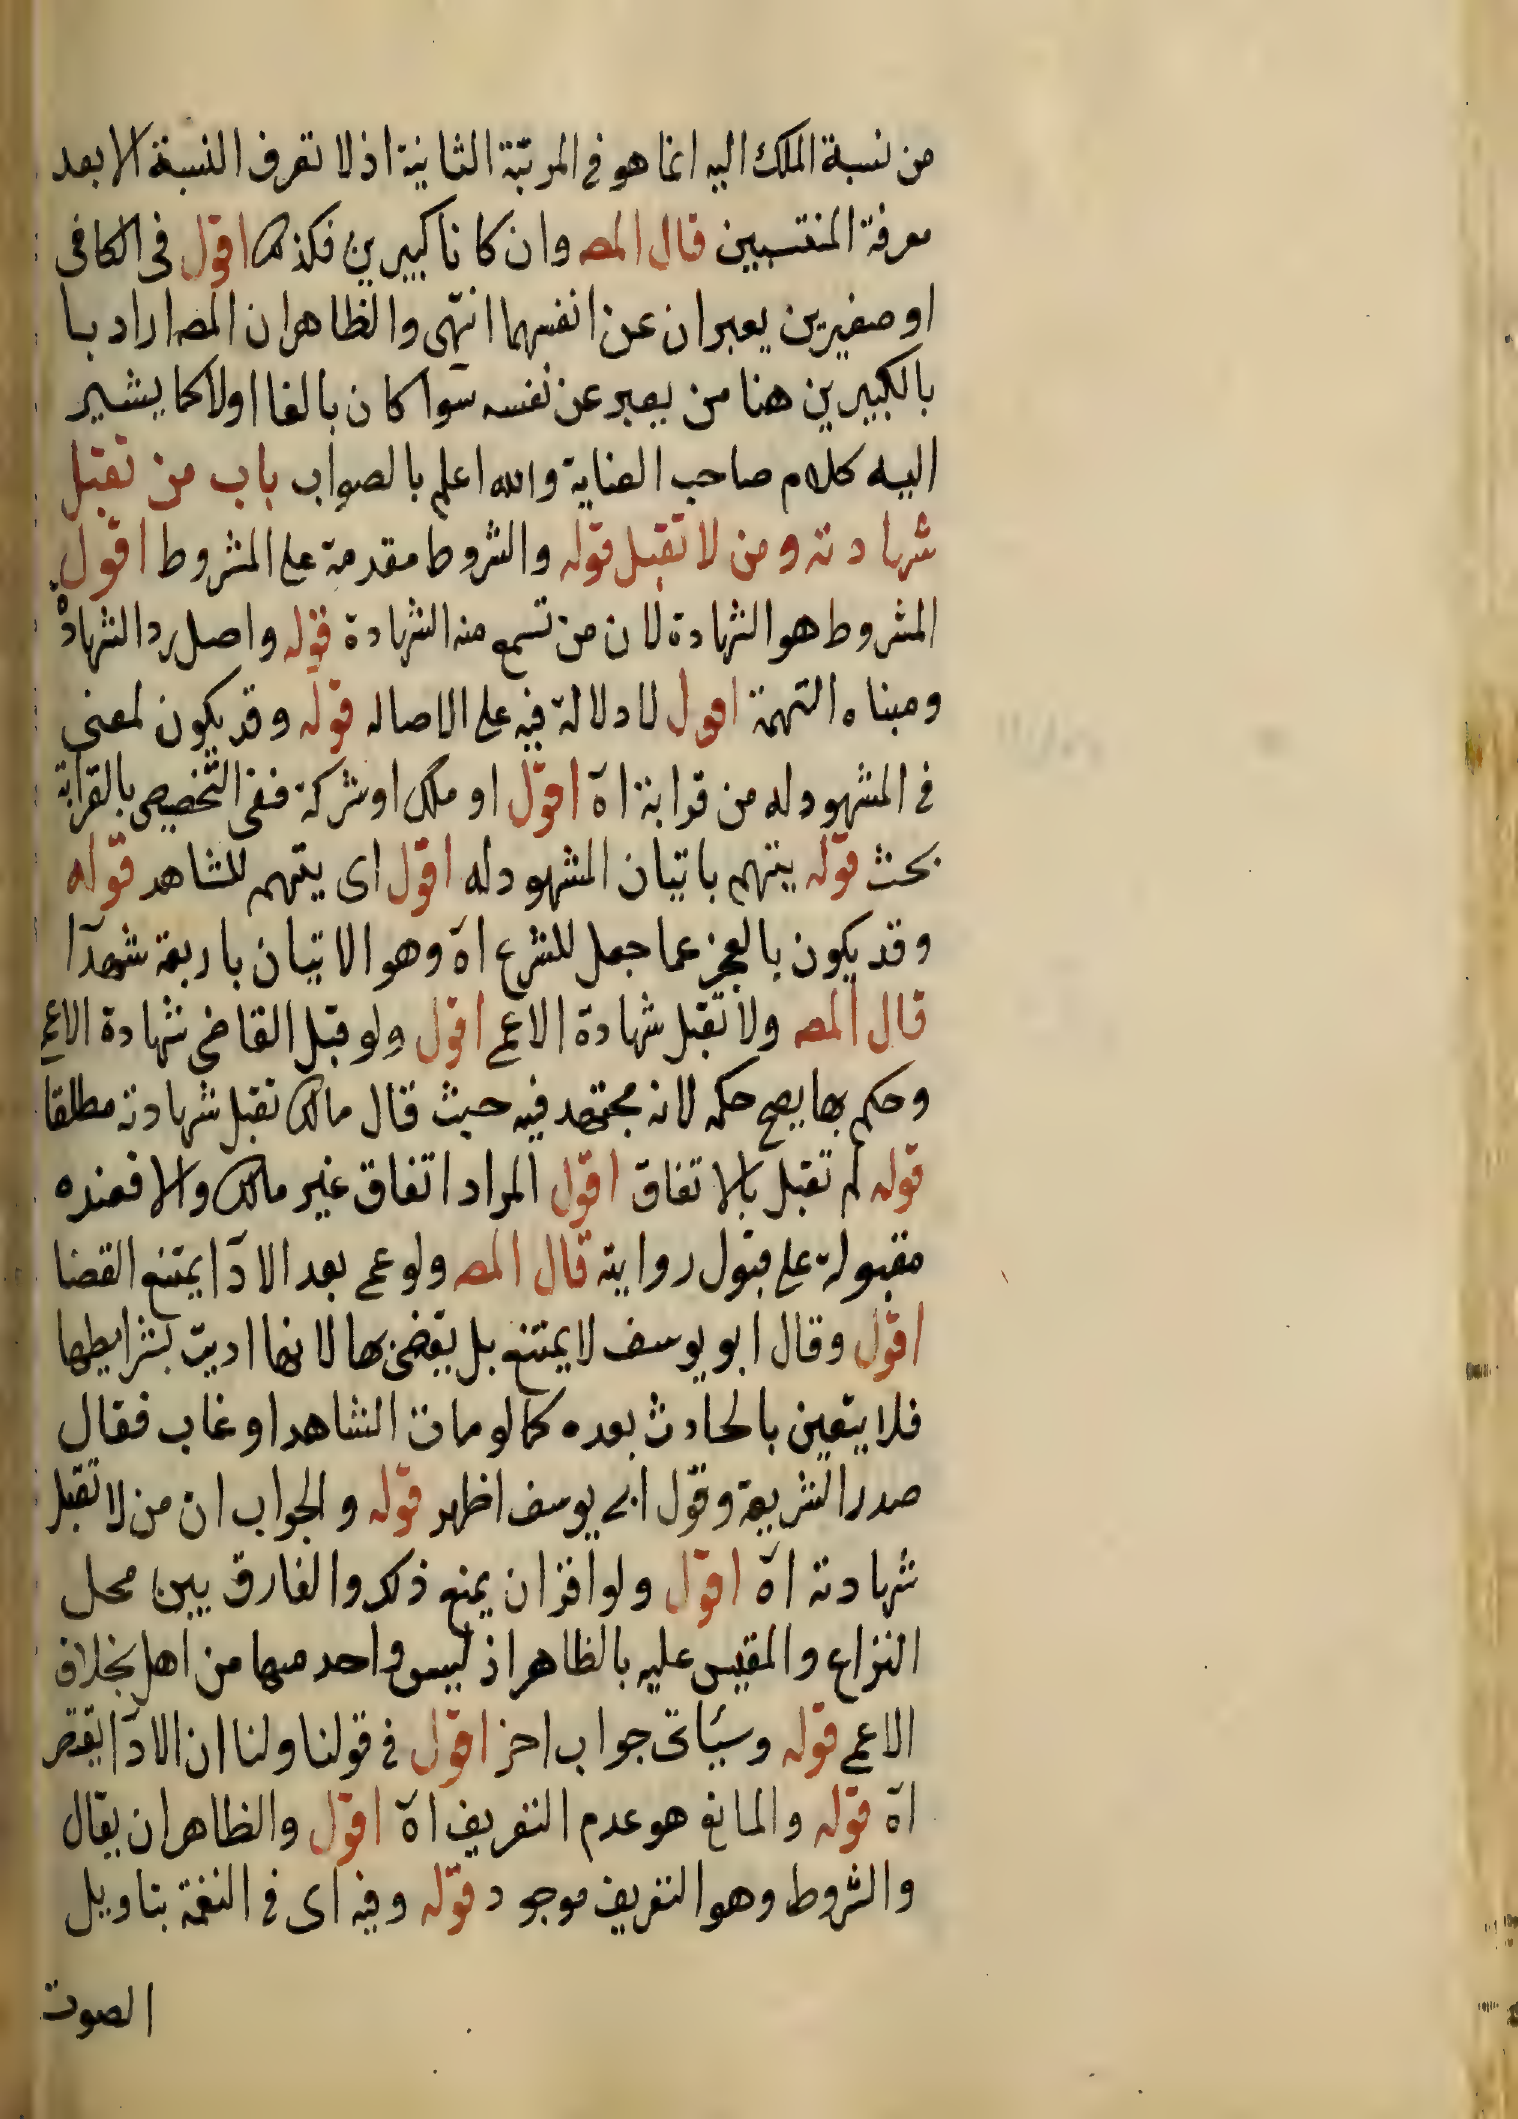 من نسبة الملك اليه انما هو في المرتبة الثانية اذ لا تعرف النسبة الا بعد
معرفة المنتسبين قال المصه وان كانا كبيرين فكذلك اقول في الكافي
او صغيرين يعبران عن انفسهما انتهى والظاهر ان المصه اراد با
بالكبيرين هنا من يعبر عن نفسه سوآ كان بالغا اولا كما يشير
اليه كلام صاحب العناية والله اعلم بالصواب باب من تقبل
شهادته ومن لا تقبل قوله والشروط مقدمة على المشروط اقول
المشروط هو الشهادة لا ن من تسمع منه الشهادة قوله واصل رد الشهادة
ومبناه التهمة اقول لا دلالة فيه على الاصاله قوله وقد يكون لمعنى
في المشهود له من قرابة اه اقول او ملك او شركة ففي التخصيص بالقرابة
بحث قوله يتهم باتيان المشهود له اقول اى يتهم للشاهد قوله
وقد يكون بالعجز عما جعل للشرع اه وهو الاتيان باربعة شهدآ
قال المصه ولا تقبل شهادة الاعمى اقول ولو قبل القاضي شهادة الاعمى
وحكم بها يصح حكمه لانه مجتهد فيه حيث قال مالك تقبل شهادته مطلقا
قوله لم تقبل بالاتفاق اقول المراد اتفاق غير مالك والا فعنده
مقبولة على قبول روايته قال المصه ولو عمى بعد الادآ يمتنع القضا
اقول وقال ابو يوسف لا يمتنع بل يقضى بها لانها اديت بشرايطها
فلا يتعين بالحادث بعده كما لو مات الشاهد او غاب فقال
صدر الشريعة وقول ابى يوسف اظهر قوله والجواب ان من لا تقبل
شهادته اه اقول ولو افز ان يمنع ذلك والفارق بين محل
النزاع والمقيس عليه بالظاهر اذ ليس واحد منها من اهل بخلاف
الاعمى قوله وسيأتى جواب اخر اقول في قولنا ولنا ان الادآ يفتقر
اه قوله والمانع هو عدم التعريف اه اقول والظاهر ان يقال
والشروط وهو التعريف موجود قوله وفيه اى في النغمة بتاويل
الصوت